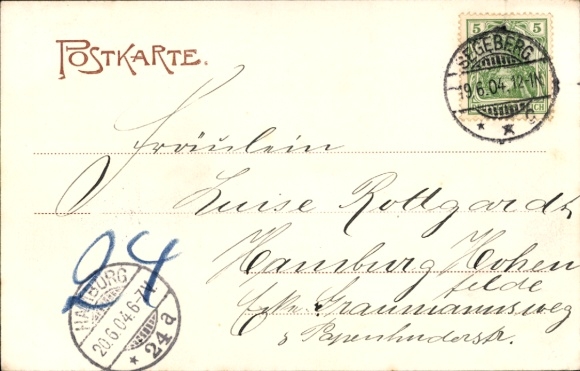 POSTKARTE.
5 5
SEGEBERG
19.6.04.12-1N
Fräulein
Luise Rottgardt
Hamburg Hohen
felde
Ecke Graumannsweg
& Papenhuderstr.
24
HAMBURG
20.6.04.6-7V.
* 24a